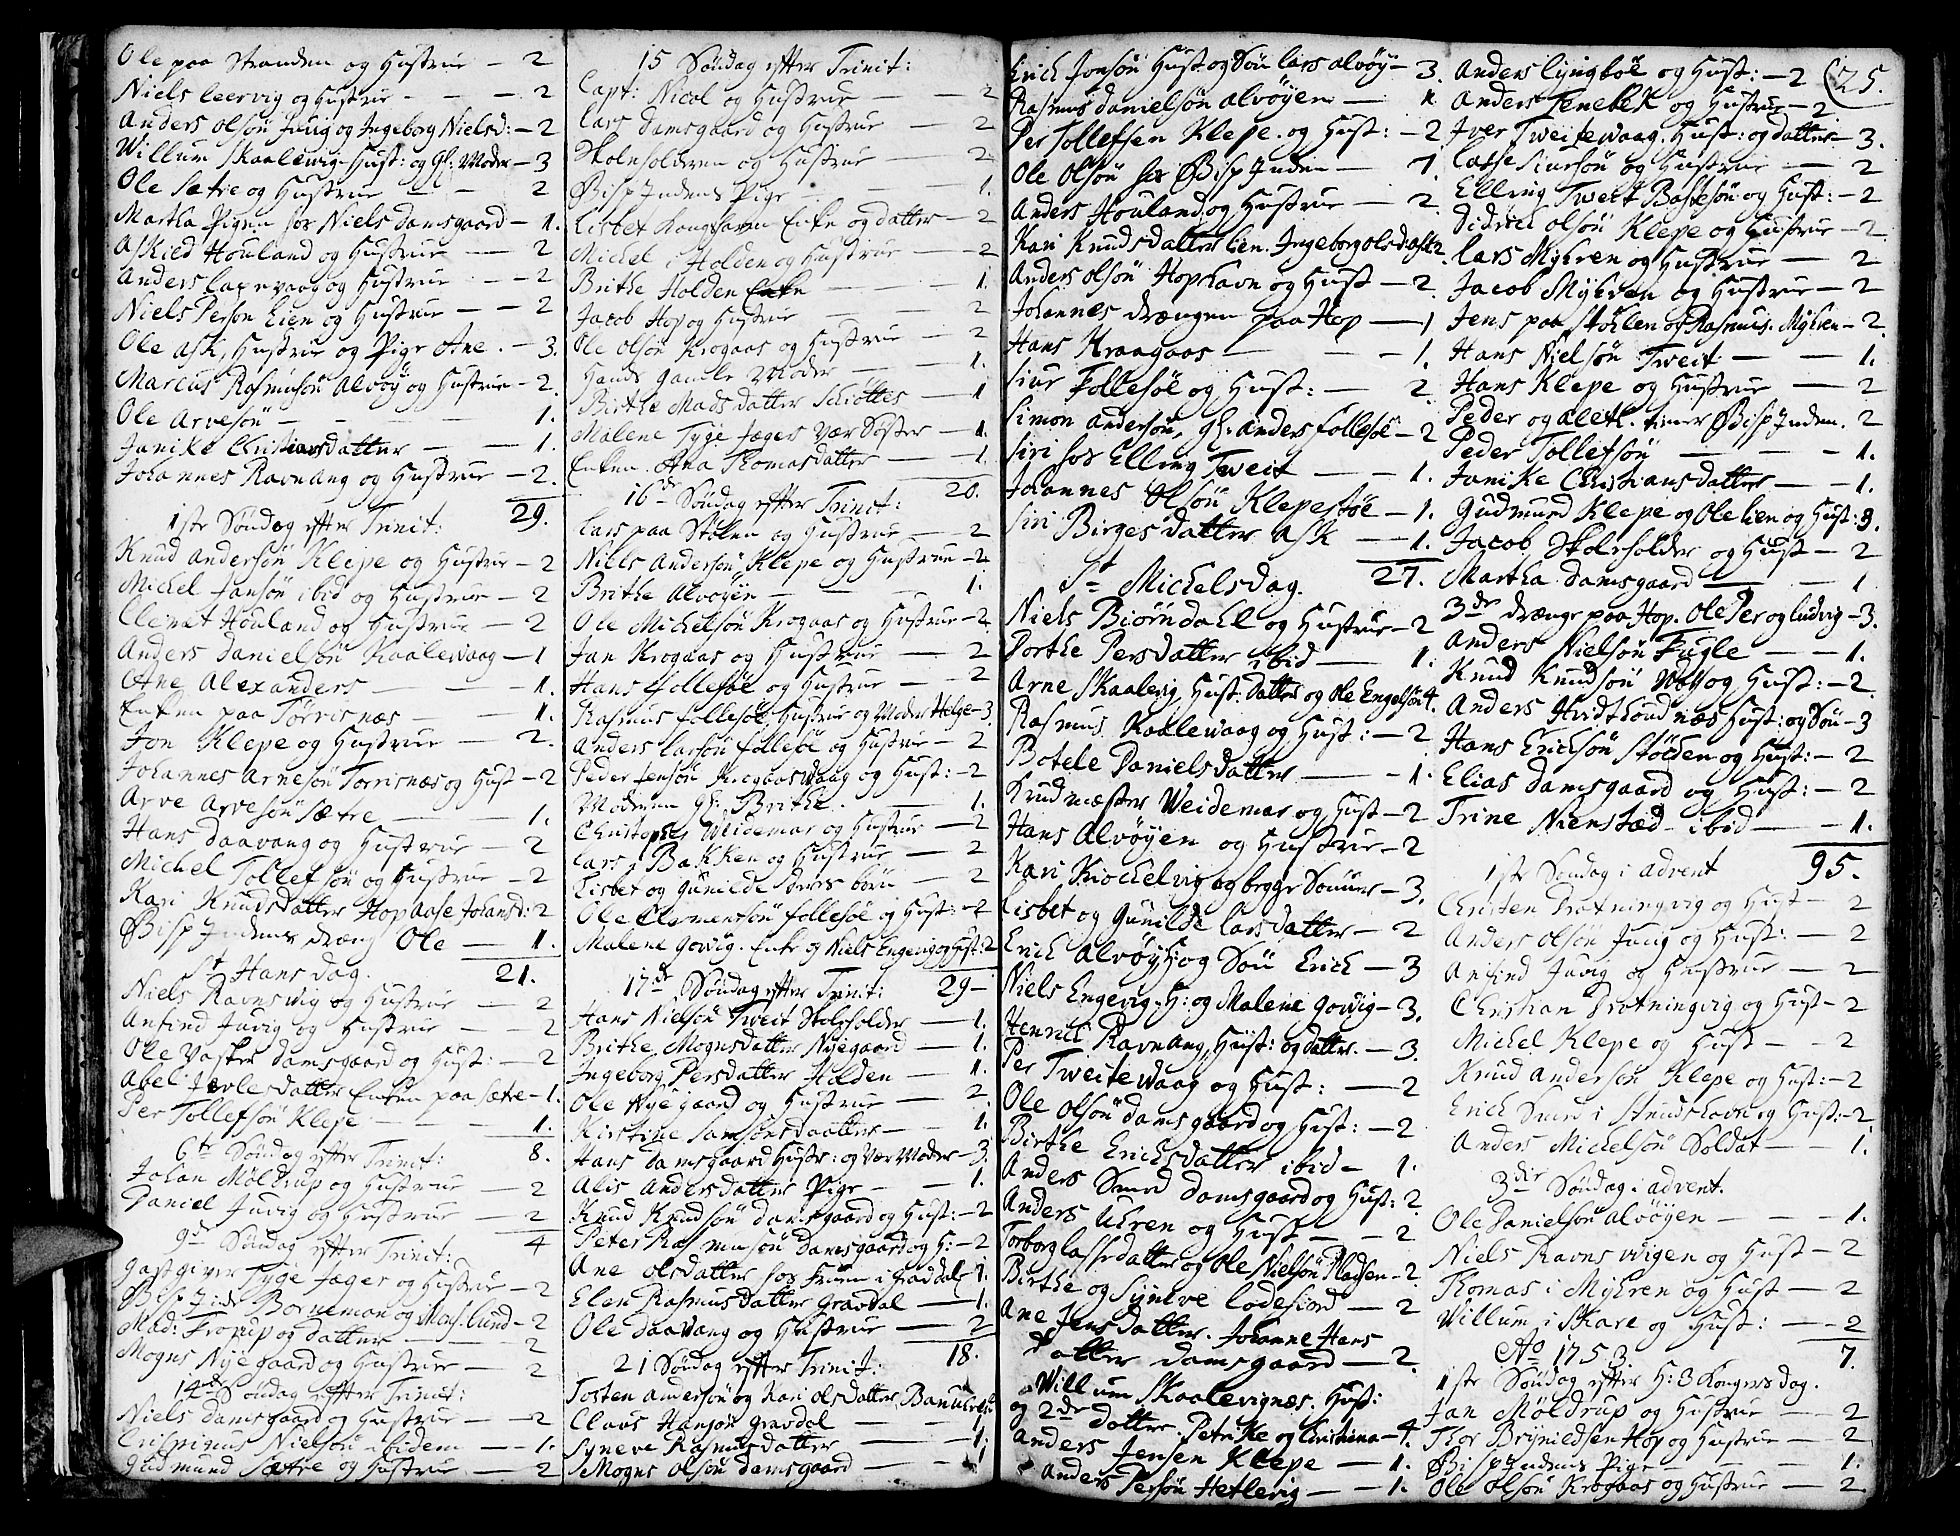 Ole paa Stranden og Hustrue — 2
Niels Leervig og Hustrue — 2
Anders Olsön Juvig og Ingeborg Nielsd: — 2
Willum Skaalevig Hust: og Gl: Moder — 3
Ole Sætre og Hustrue — 2
Martha Pigen hos Niels Damsgaard — 1.
Askied Houland og Hustrue — 2
Anders Laxevaag og Hustrue — 2
Niels Persön Lien og Hustrue — 2
Ole Ask, Hustrue og Pige Ane. — 3.
Marcus Rasmusön Alvöy og Hustrue — 2.
Ole Arvesön — 1.
Janike Christiansdatter — 1.
Johannes Ravnang og Hustrue — 2.
1ste Söndag efter Trinit: 29.
Knud Andersön Klepe og Hustrue — 2
Michel Jansön ibid og Hustrue — 2
Clemet Houland og Hustrue — 2
Anders Danielsön Kaalewaag — 1
Ane Alexanders — 1.
Enken paa Törrisnæs — 1.
Jon Klepe og Hustrue — 2.
Johannes Arnesön Torrisnæs og Hust — 2
Arve Arvesön Sætre — 1.
Hans Daavang og Hustrue — 2
Michel Tollefsön og Hustrue — 2
Kari Knudsdatter Hop Aase Johansd: 2
Bisp Indens dreng Ole — 1.
St Hans dag. 21.
Niels Ravnsvig og Hustrue — 2
Anfind Juvig og Hustrue — 2
Ole Vasker Damsgaard og Hust: — 2
Abel datter Enken paa Sætre — 1.
Per Tollefsön Klepe — 1.
6te Söndag efter Trinit: 8.
Johan Möldrup og Hustrue — 2
Daniel Juvig og Hustrue — 2
9de Söndag efter Trinit: 4
Gastgiver Tyge Jæger og Hustrue — 2
Borneman og Mons. Lund — 2
Mad: Frorup og datter — 2
Mogns Nyegaard og Hustrue — 2
14de Söndag efter Trinit:
Niels Damsgaard og Hustrue — 2
Crispinus Nielsön ibidem — 1.
Gudmund Sætre og Hustrue — 2
15 Söndag efter Trinit:
Capt: Nicol og Hustrue — 2
Lars Damsgaard og Hustrue — 2
Skoleholderen og Hustrue — 2
Bisp Indens Pige — 1.
Lisbet Kongshavn Enke og datter — 2
Michel i Holden og Hustrue — 2
Brithe Holden Enke — 1.
Jacob Hop og Hustrue — 2
Ole Olsön Krogaas og Hustrue — 2
Hands gamle Moder — 1.
Birthe Madsdatter Schöttes — 1
Malene Tyge Jægers Vær Söster — 1.
Enken Ana Thomasdatter — 1.
16de Söndag efter Trinit: 20.
Lars paa Stölen og Hustrue — 2
Niels Andersön Klepe og Hustrue — 2
Brithe Alvöyen — 1.
Ole Michelsön Krogaas og Hustrue — 2
Jan Krogaas og Hustrue — 2
Hans Follesöe og Hustrue — 2
Rasmus Follesöe, Hustrue og Moder Helge — 3
Anders Larsön Follesöe og Hustrue — 2
Peder Jensön Krogaasvaag og Hust: — 2
Moderen Gl: Brithe. — 1.
Christopher Weidemar og Hustrue — 2
Lars i Bakken og Hustrue — 2
Lisbet og Gunilde deres börn — 2
Ole Clementsön Follesöe og Hust: — 2
Malene Govig Enke og Niels Engevig og Hust: 2
17de Söndag efter Trinit: 29
Hans Nielsön Tweit Skoleholder — 1.
Brithe Mognsdatter Nyegaard — 1.
Ingeborg Persdatter Holden — 1.
Ole Nyegaard og Hustrue — 2.
Kirstine Samsonsdaatter — 1.
Hans Damsgaard Hustr: og Vær Moder — 3.
Alis Andersdatter Pige — 1.
Knud Knudsön Damsgaard og Hust: — 2
Peter Rasmusön Damsgaard og H: — 2
Ane Olsdatter hos Fruen i Gravdal — 1.
Elen Rasmusdatter Gravdal — 1.
Ole Daavang og Hustrue — 2
21 Söndag efter Trinit: 18.
Tosten Andersön og Kari Olsdatter
Claus Hansön Gravdal — 1.
Syneve Rasmusdatter — 1.
Mogns Olsön Damsgaard — 1
Erich Jonsön Hust og Sön Lars Alvöy — 3.
Rasmus Danielsön Alvöyen — 1.
Per Tollefsen Klepe og Hust: — 2
Ole Olsön hos Bisp Inden — 1.
Anders Houland og Hustrue — 2.
Kari Knudsdatter Lien. Ingeborg Olsd: Ask 2.
Anders Olsön Hopshavn og Hust — 2.
Johannes drengen paa Hop — 1
Hans Kraagaas — 1.
Siur Follesöe og Hust: — 2
Simon Andersön, Gl: Anders Follesöe — 2
Siri hos Elling Tweit — 1.
Johannes Olsön Klepestöe — 1.
Siri Birgesdatter Ask — 1.
St Michelsdag. 27.
Niels Biörndahl og Hustrue — 2
Dorthe Persdatter ibid — 1.
Arne Skaalevig Hust: datter og Ole Engelsön 4.
Rasmus Kaalewaag og Hust: — 2
Botele Danielsdatter — 1.
Krudmæster Weidemar og Hust — 2
Hans Alvöyen og Hustrue — 2
Kari Kiochelvig og begge Sönner — 3.
Lisbet og Gunilde Larsdatter — 2
Erich Alvöy H: og Sön Erich — 3
Niels Engevig H: og Malene Govig — 3.
Henrich Ravnang, Hust: og datter. — 3.
Per Tweitewaag og Hust: — 2
Ole Olsön Damsgaard og Hust: — 2
Birthe Erichsdatter ibid — 1.
Anders Smed Damsgaard og Hust: 2.
Anders Uhren og Hust — 2
Torborg Lassedatter og Ole Nielsön Pladsen — 2.
Birthe og Syneve Lodefiord — 2
Ane Jensdatter. Johanne Hans
datter Damsgaard — 2.
Willum Skaalevignæs. Hust:
og 2de datter. Petrike og Cristina — 4.
Anders Jensen Klepe — 1.
Anders Persön Hetlevig — 1.
25.
Anders Lyngböe og Hust: — 2
Anders Tenebek og Hustrue — 2
Iver Tweitewaag. Hust: og datter — 3.
Lasse Siursön og Hustrue — 2
Elling Tweit Bastesön og Hust: — 2
Didrich Olsön Klepe og Hustrue — 2
Lars Myhren og Hustrue — 2
Jacob Myhren og Hustrue — 2
Jens paa Stöhlen og Rasmus Myhren — 2.
Hans Nielsön Tweit — 1.
Hans Klepe og Hustrue — 2
Peder og Aleth. tiener Bisp Inden. 2
Peder Tollefsön — 1.
Janike Christiansdatter — 1.
Gudmund Klepe og Ole Lien og Hust: 3.
Jacob Skoleholder og Hust — 2
Martha Damsgaard — 1
3de drenge paa Hop. Ole Per og Ludvig — 3.
Anders Nielsön Fugle — 1.
Knud Knudsön og Hust: — 2.
Anders Hvidthoudnæs Hust: og Sön — 3
Hans Erichsön Stöhlen og Hust: — 2
Elias Damsgaard og Hust: — 2
Trine Nienstæd ibid — 1.
1ste Söndag i advent 95.
Christen Drotningvig og Hust — 2
Anders Olsön Juvig og Hust: — 2
Anfind Juvig og Hustrue — 2
Christian Drotningvig og Hust — 2
Michel Klepe og Hust — 2
Knud Andersön Klepe og Hust: — 2
Erich Smed i og Hust: — 2.
Anders Michelsön Soldat — 1.
3die Söndag i advent.
Ole Danielsön Alvöyen — 1.
Niels Ravnsvigen og Hust — 2
Thomas i Myhren og Hust — 2
Willum i Skare og Hust: — 2
Ao 1753 7.
1ste Söndag efter H: 3 Kongers dag.
Jan Möldrup og Hustrue — 2
Thor Brynildsen Hop og Hustrue — 2
Bisp Indens Pige — 1.
Ole Olsön Krogaas og Hustrue — 2.